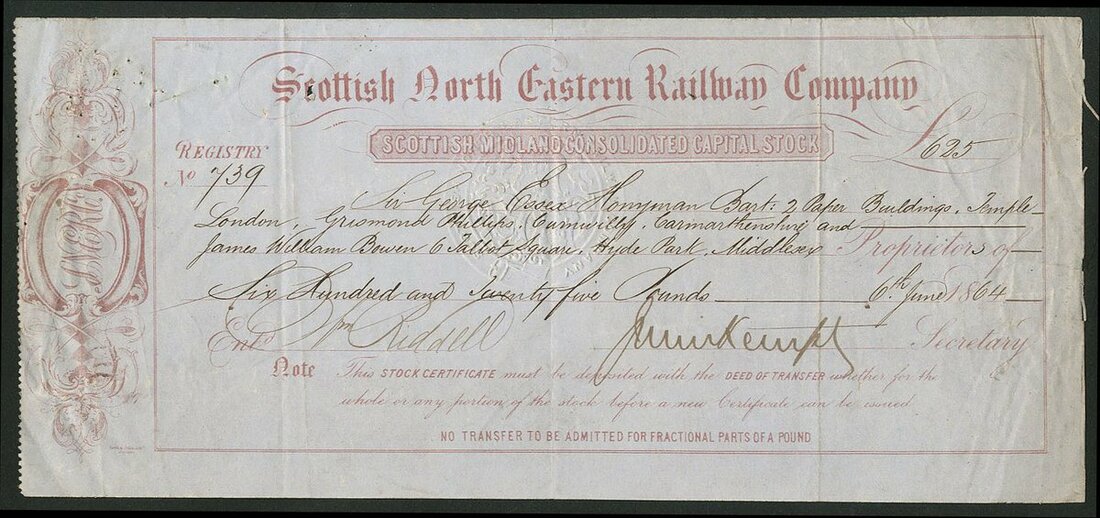 Scottish North Eastern Railway Company
SCOTTISH MIDLAND CONSOLIDATED CAPITAL STOCK
£625
REGISTRY
No 739
Sir George Essex Honyman Bart: 2 Paper Buildings, Temple
London, Grismond Philipps, Cwmgwilly, Carmarthenshire and
James William Bowen 6 Talbot Square, Hyde Park, Middlesex Proprietors of
Six Hundred and Twenty five Pounds 6th June 1864
Entd Wm Riddell Secretary
Note This STOCK CERTIFICATE must be deposited with the DEED OF TRANSFER whether for the
whole or any portion of the stock before a new Certificate can be issued
NO TRANSFER TO BE ADMITTED FOR FRACTIONAL PARTS OF A POUND